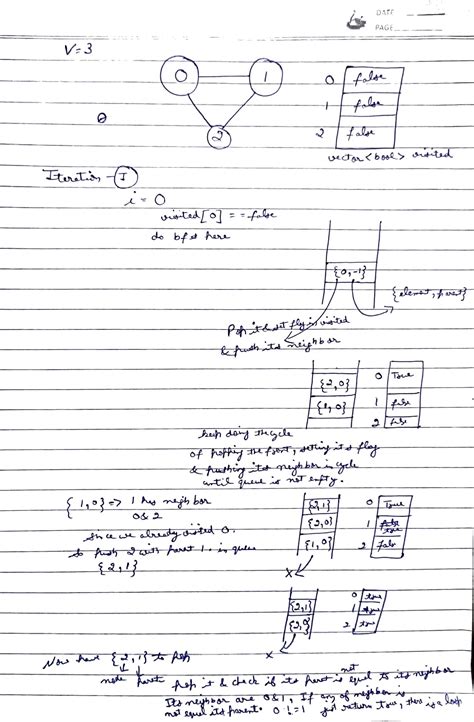 DATE
PAGE
V=3
0 1
2
0 false
1 false
2 false
vector<bool> visited
Iteration - I
i = 0
visited[0] == false
do bfs here
{0,-1}
{element, parent}
Pop it & set flag in visited
& push its neighbor
{2,0}
{1,0}
0 True
1 false
2 false
keep doing the cycle
of popping the front, setting its flag
& pushing its neighbor in cycle
until queue is not empty.
{1,0} => 1 has neighbor
0 & 2
Since we already visited 0.
So push 2 with parent 1. in queue
{2,1}
{2,1}
{2,0}
{1,0}
0 True
1 false
true
2 false
x
{2,1}
{2,0}
0 true
1 true
2 true
x
Now have {2,1} to pop
node parent
pop it & check if its parent is not equal to its neighbor
Its neighbor are 0 & 1, If any of neighbor is
not equal its parent. 0 != 1 just return true, there is a loop